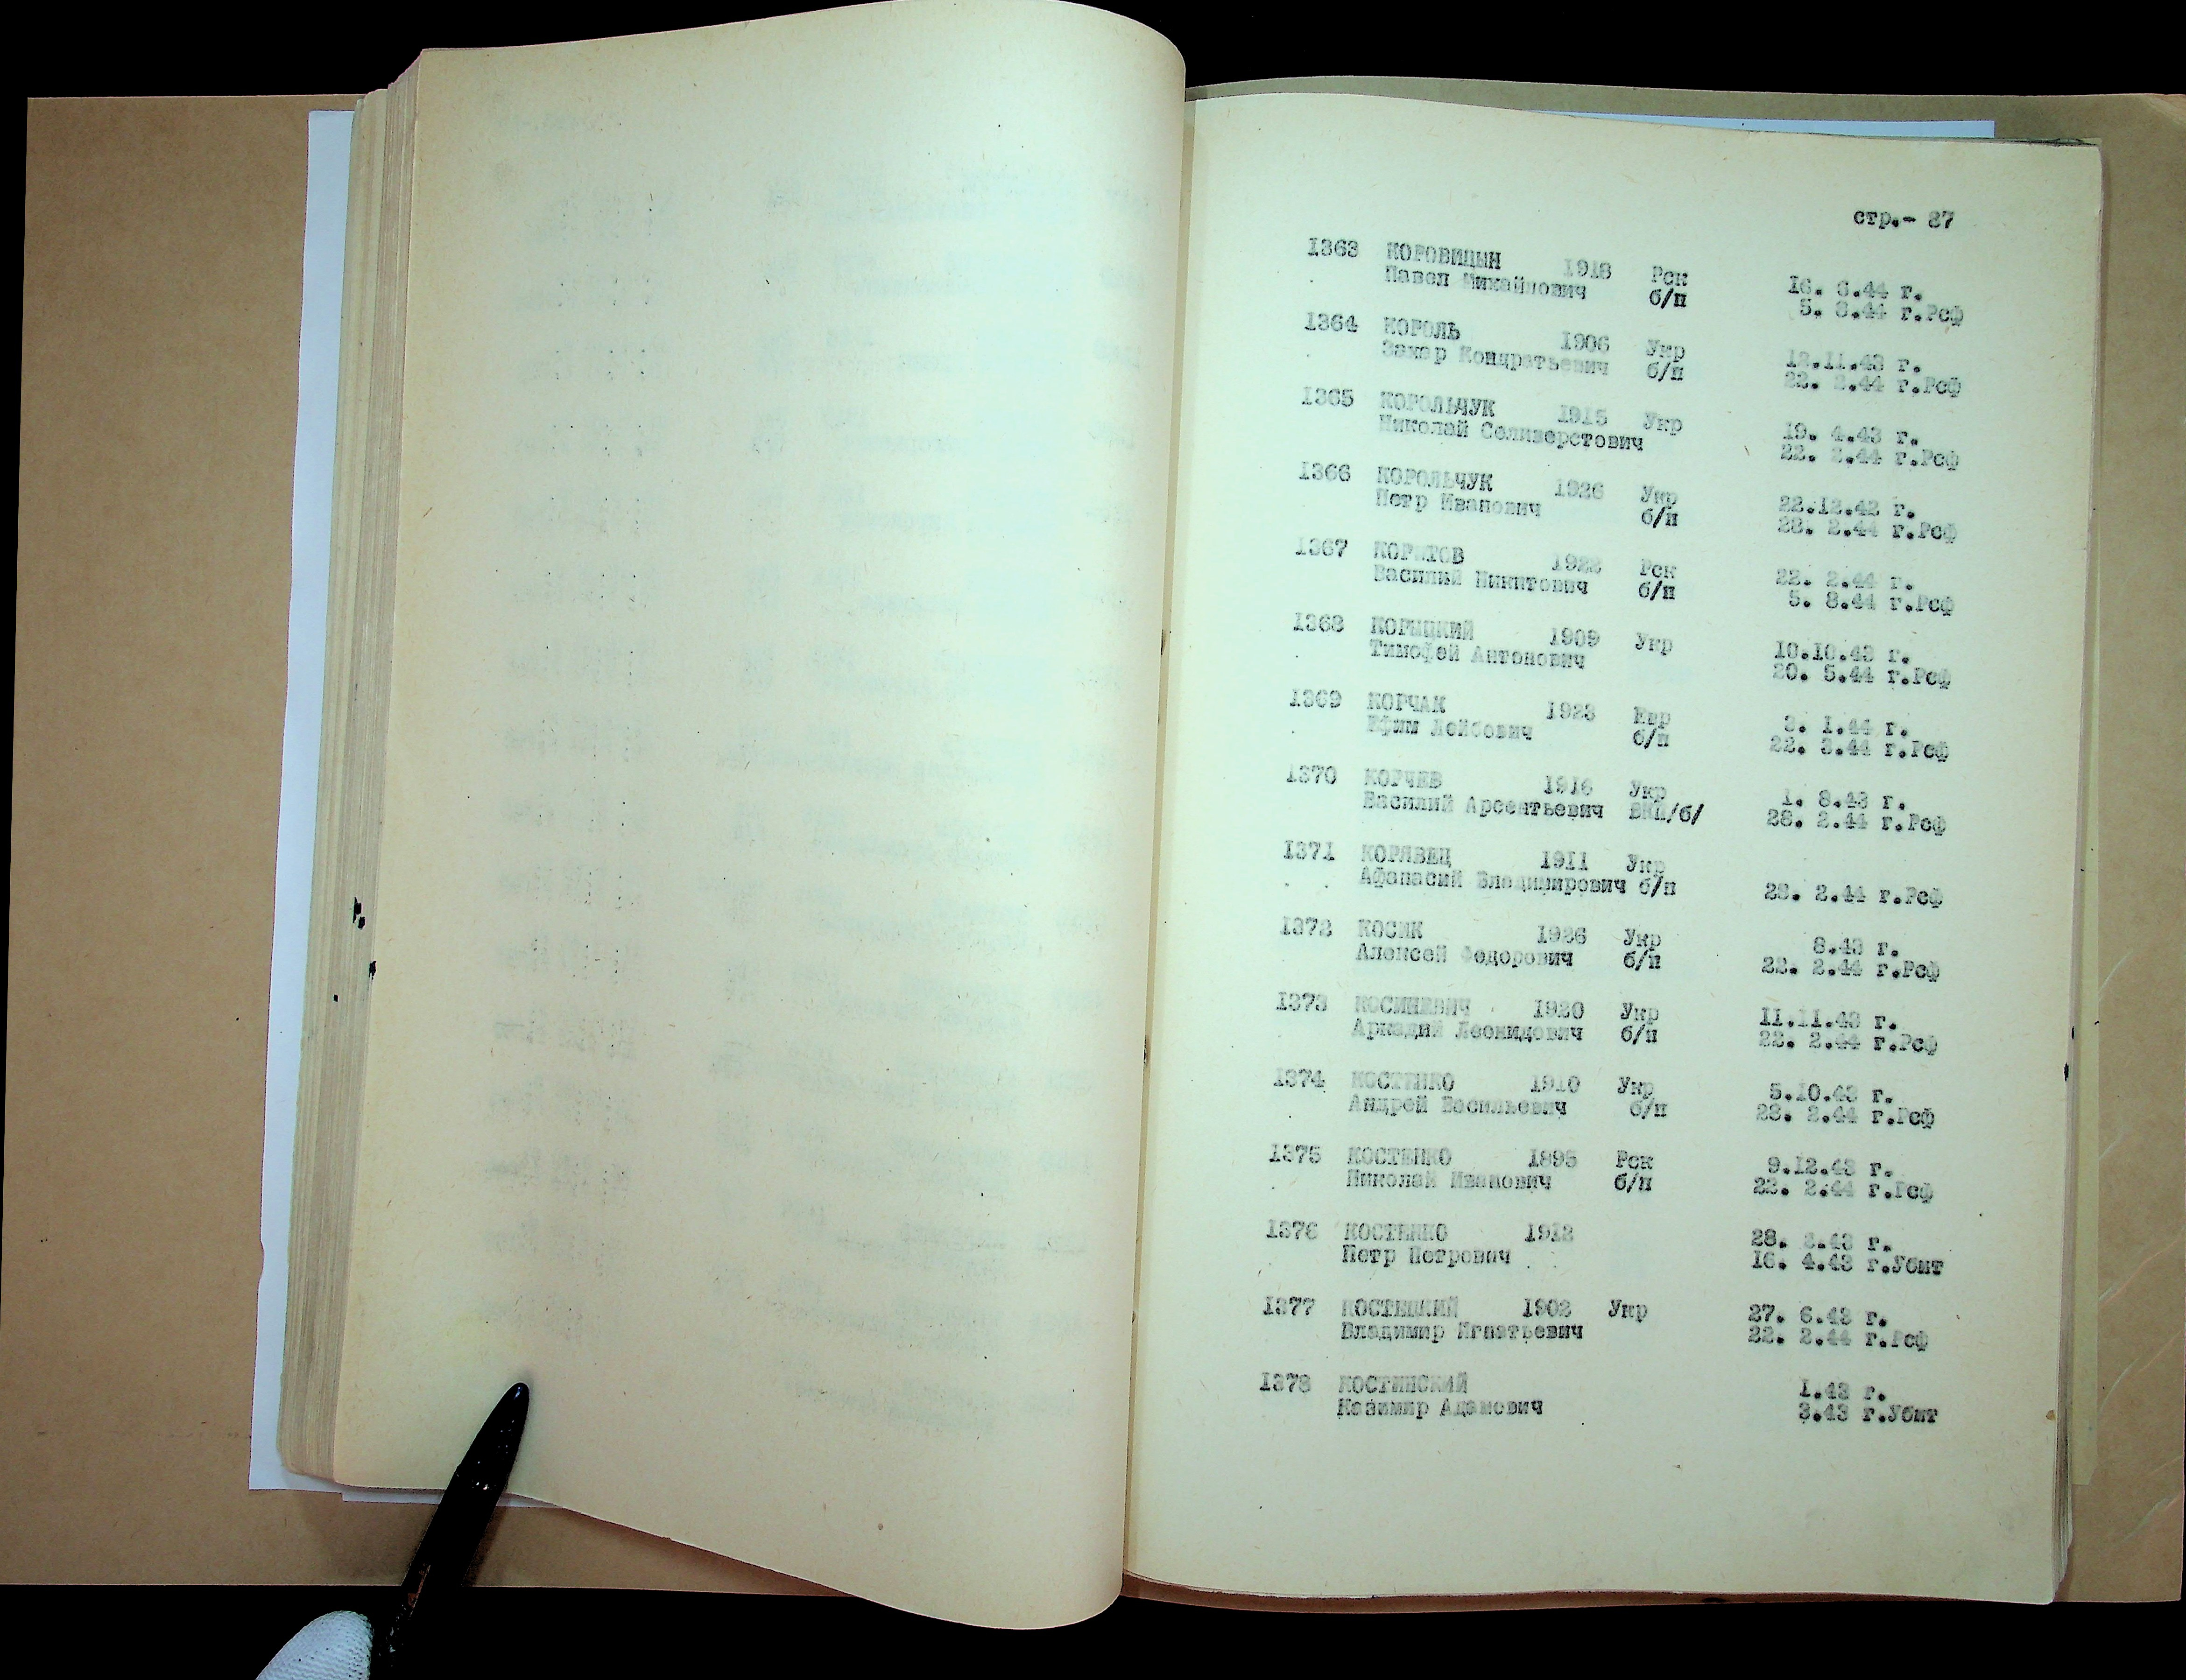 стр.- 87
1363 КОРОВИЦЫН 1918 Рск 16. 6.44 г.
Павел Михайлович б/п 5. 8.44 г.Рсф
1364 КОРОЛЬ 1906 Укр 12.11.43 г.
Захар Кондратьевич б/п 22. 2.44 г.Рсф
1365 КОРОЛЬЧУК 1915 Укр 19. 4.43 г.
Николай Селиверстович 22. 2.44 г.Рсф
1366 КОРОЛЬЧУК 1926 Укр 22.12.42 г.
Петр Иванович б/п 28. 2.44 г.Рсф
1367 КОРЫТОВ 1922 Рск 22. 2.44 г.
Василий Никитович б/п 5. 8.44 г.Рсф
1368 КОРЫЦКИЙ 1909 Укр 10.10.43 г.
Тимофей Антонович 20. 5.44 г.Рсф
1369 КОРЧАК 1923 Евр 3. 1.44 г.
Ефим Лейбович б/п 22. 3.44 г.Рсф
1370 КОРЧЕВ 1916 Укр 1. 8.43 г.
Василий Арсентьевич ВКП/б/ 28. 2.44 г.Рсф
1371 КОРЯВЕЦ 1911 Укр
Афанасий Владимирович б/п 28. 2.44 г.Рсф
1372 КОСИК 1926 Укр 8.43 г.
Алексей Федорович б/п 22. 2.44 г.Рсф
1373 КОСИНЕВИЧ 1920 Укр 11.11.43 г.
Аркадий Леонидович б/п 22. 2.44 г.Рсф
1374 КОСТЕНКО 1910 Укр 5.10.43 г.
Андрей Васильевич б/п 28. 2.44 г.Рсф
1375 КОСТЕНКО 1895 Рск 9.12.43 г.
Николай Иванович б/п 22. 2.44 г.Рсф
1376 КОСТЕНКО 1912 28. 3.43 г.
Петр Петрович 16. 4.43 г.Убит
1377 КОСТЕЦКИЙ 1902 Укр 27. 6.43 г.
Владимир Игнатьевич 22. 2.44 г.Рсф
1378 КОСТИНСКИЙ 1.43 г.
Казимир Адамович 3.43 г.Убит